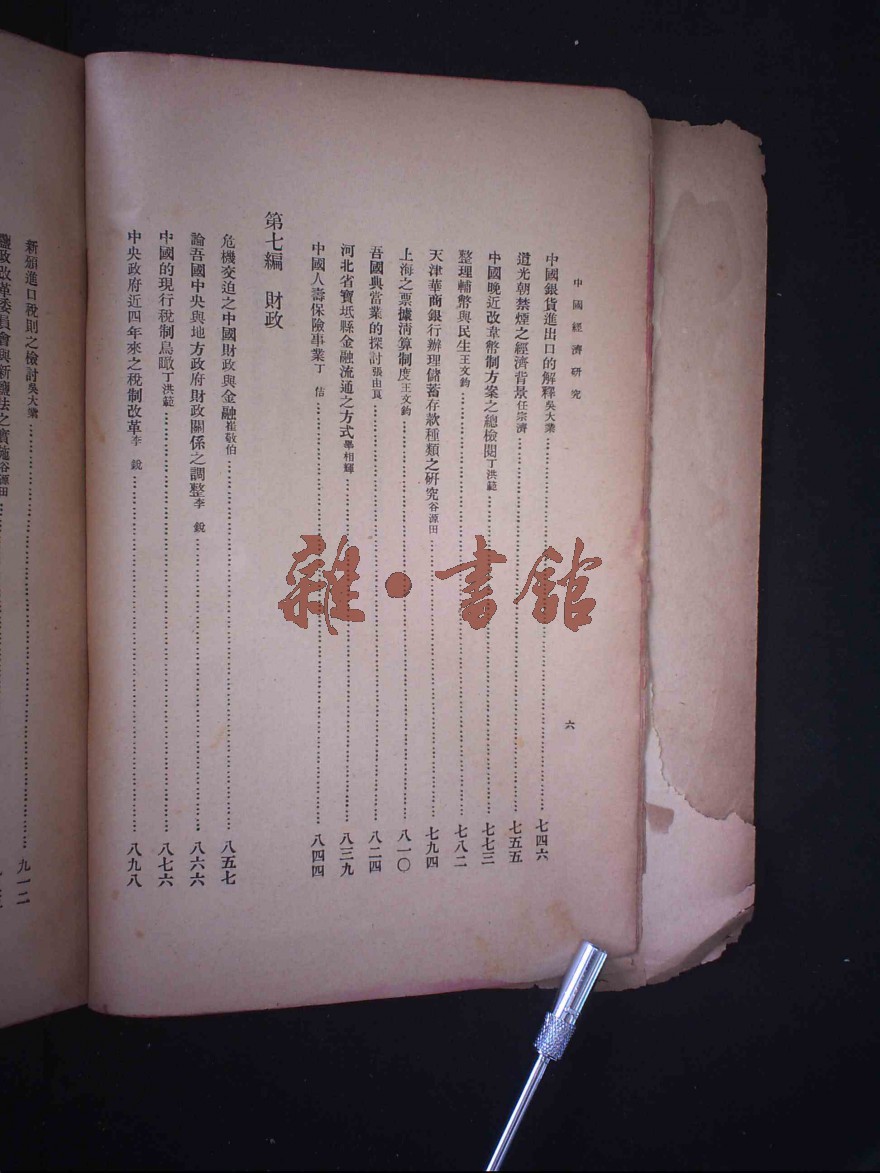 中國經濟研究
六
中國銀貨進出口的解釋吳大業……七四六
道光朝禁煙之經濟背景任宗濟……七五五
中國晚近改革幣制方案之總檢閱丁洪範……七七三
整理輔幣與民生王文鈞……七八二
天津華商銀行辦理儲蓄存款種類之研究谷源田……七九四
上海之票據清算制度王文鈞……八一〇
吾國典當業的探討張由良……八二四
河北省寶坻縣金融流通之方式畢相輝……八三九
中國人壽保險事業丁 佶……八四四
第七編 財政
危機交迫之中國財政與金融崔敬伯……八五七
論吾國中央與地方政府財政關係之調整李 銳……八六六
中國的現行稅制鳥瞰丁洪範……八七六
中央政府近四年來之稅制改革李 銳……八九八
新頒進口稅則之檢討吳大業……九一二
鹽政改革委員會與新鹽法之實施谷源田……
雜·書館